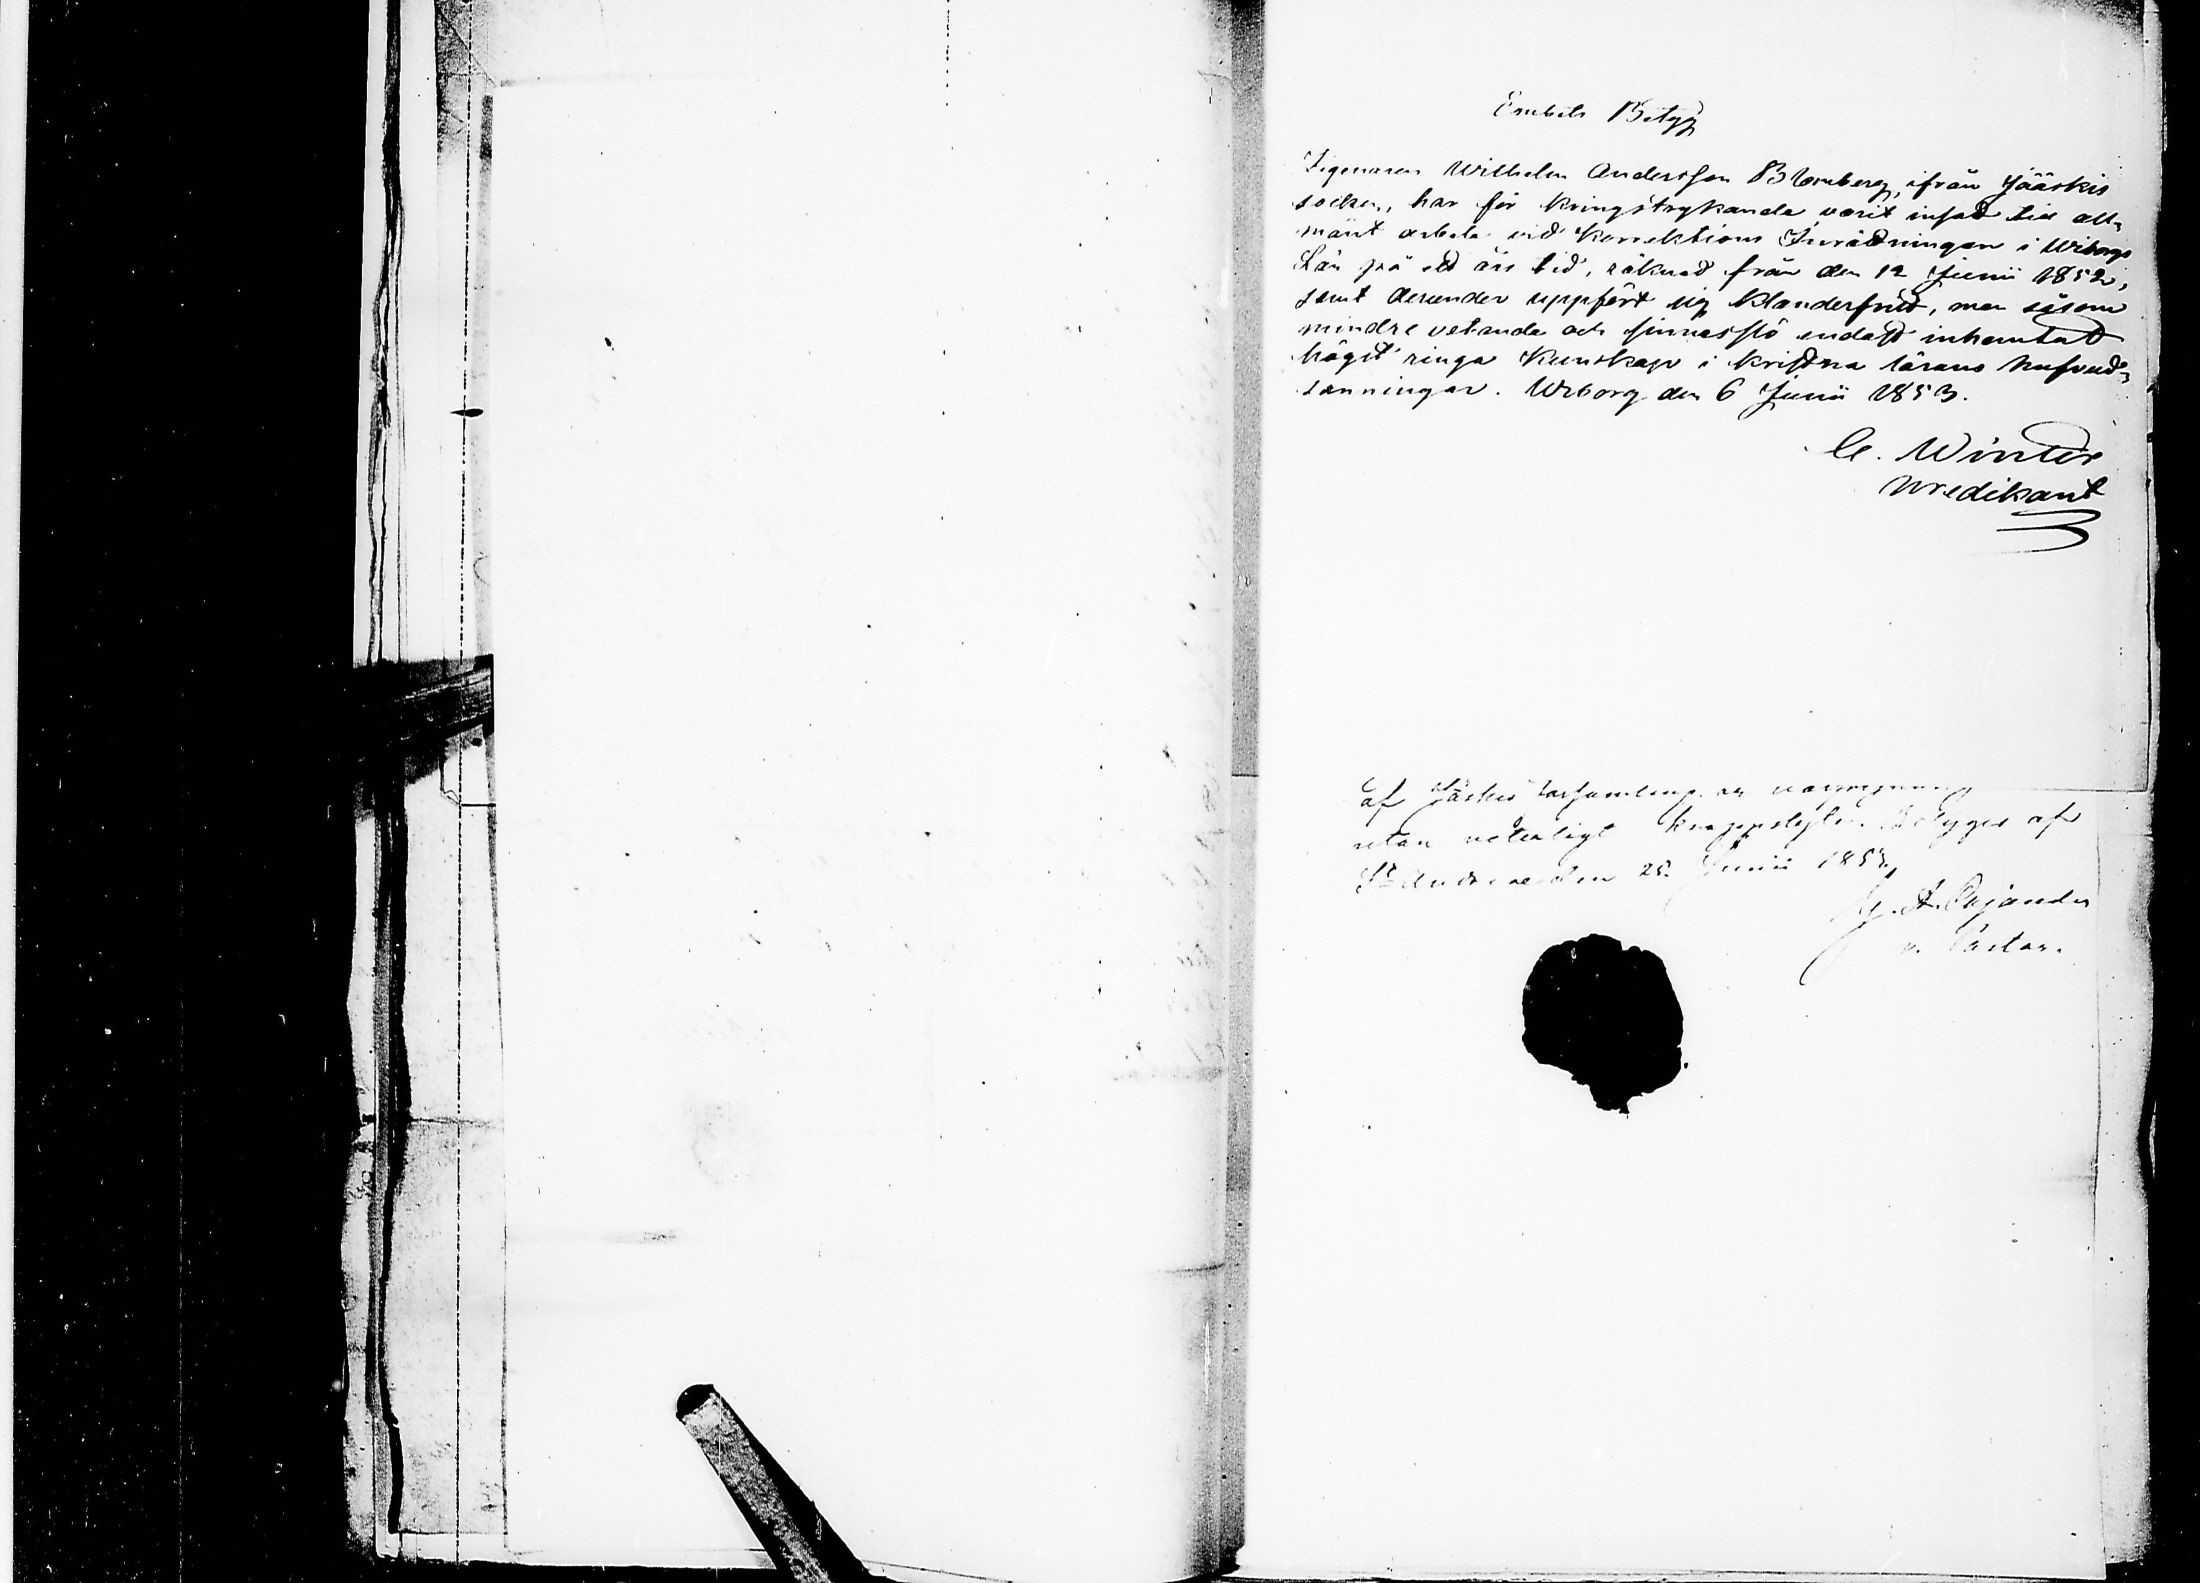 Embets Betyg
Zigenaren Wilhelm Andersson Blomberg, ifrån Jääskis
socken, har för kringstrykande varit insatt till all-
mänt arbete vid Korrektions Inrättningen i Wiborgs
Län på ett års tid, räknad från den 12 Junii 1852,
samt derunder uppfört sig klanderfritt, men såsom
mindre vetande och sinnesslö endast inhemtat
högst ringa Kunskap i kristna lärans hufvud-
sanningar. Wiborg den 6 Junii 1853.
C. Winter
Predikant
af Jäskis Församling är
utan veterligt kroppslyte. Betygas af
St Andreae den 25 Junii 1853,
G. A. Cajander
v. Pastor.